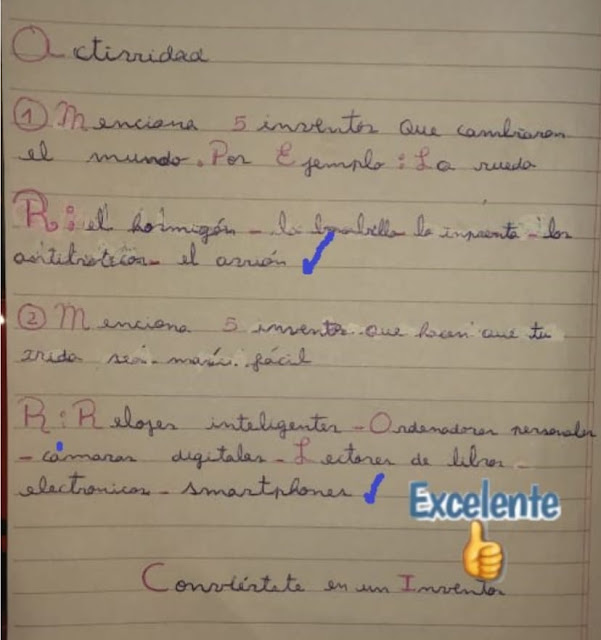 Actividad
① Menciona 5 inventos Que cambiaron
el mundo. Por Ejemplo: La rueda
R: el hormigón - la la inprenta - los
antibioticos - el avión
② Menciona 5 inventos que hacen que tu
vida sea más fácil
R: Relojes inteligentes - Ordenadores personales
- cámaras digitales - Lectores de libros -
electronicos - smartphones
Excelente
Conviértete en un Inventor